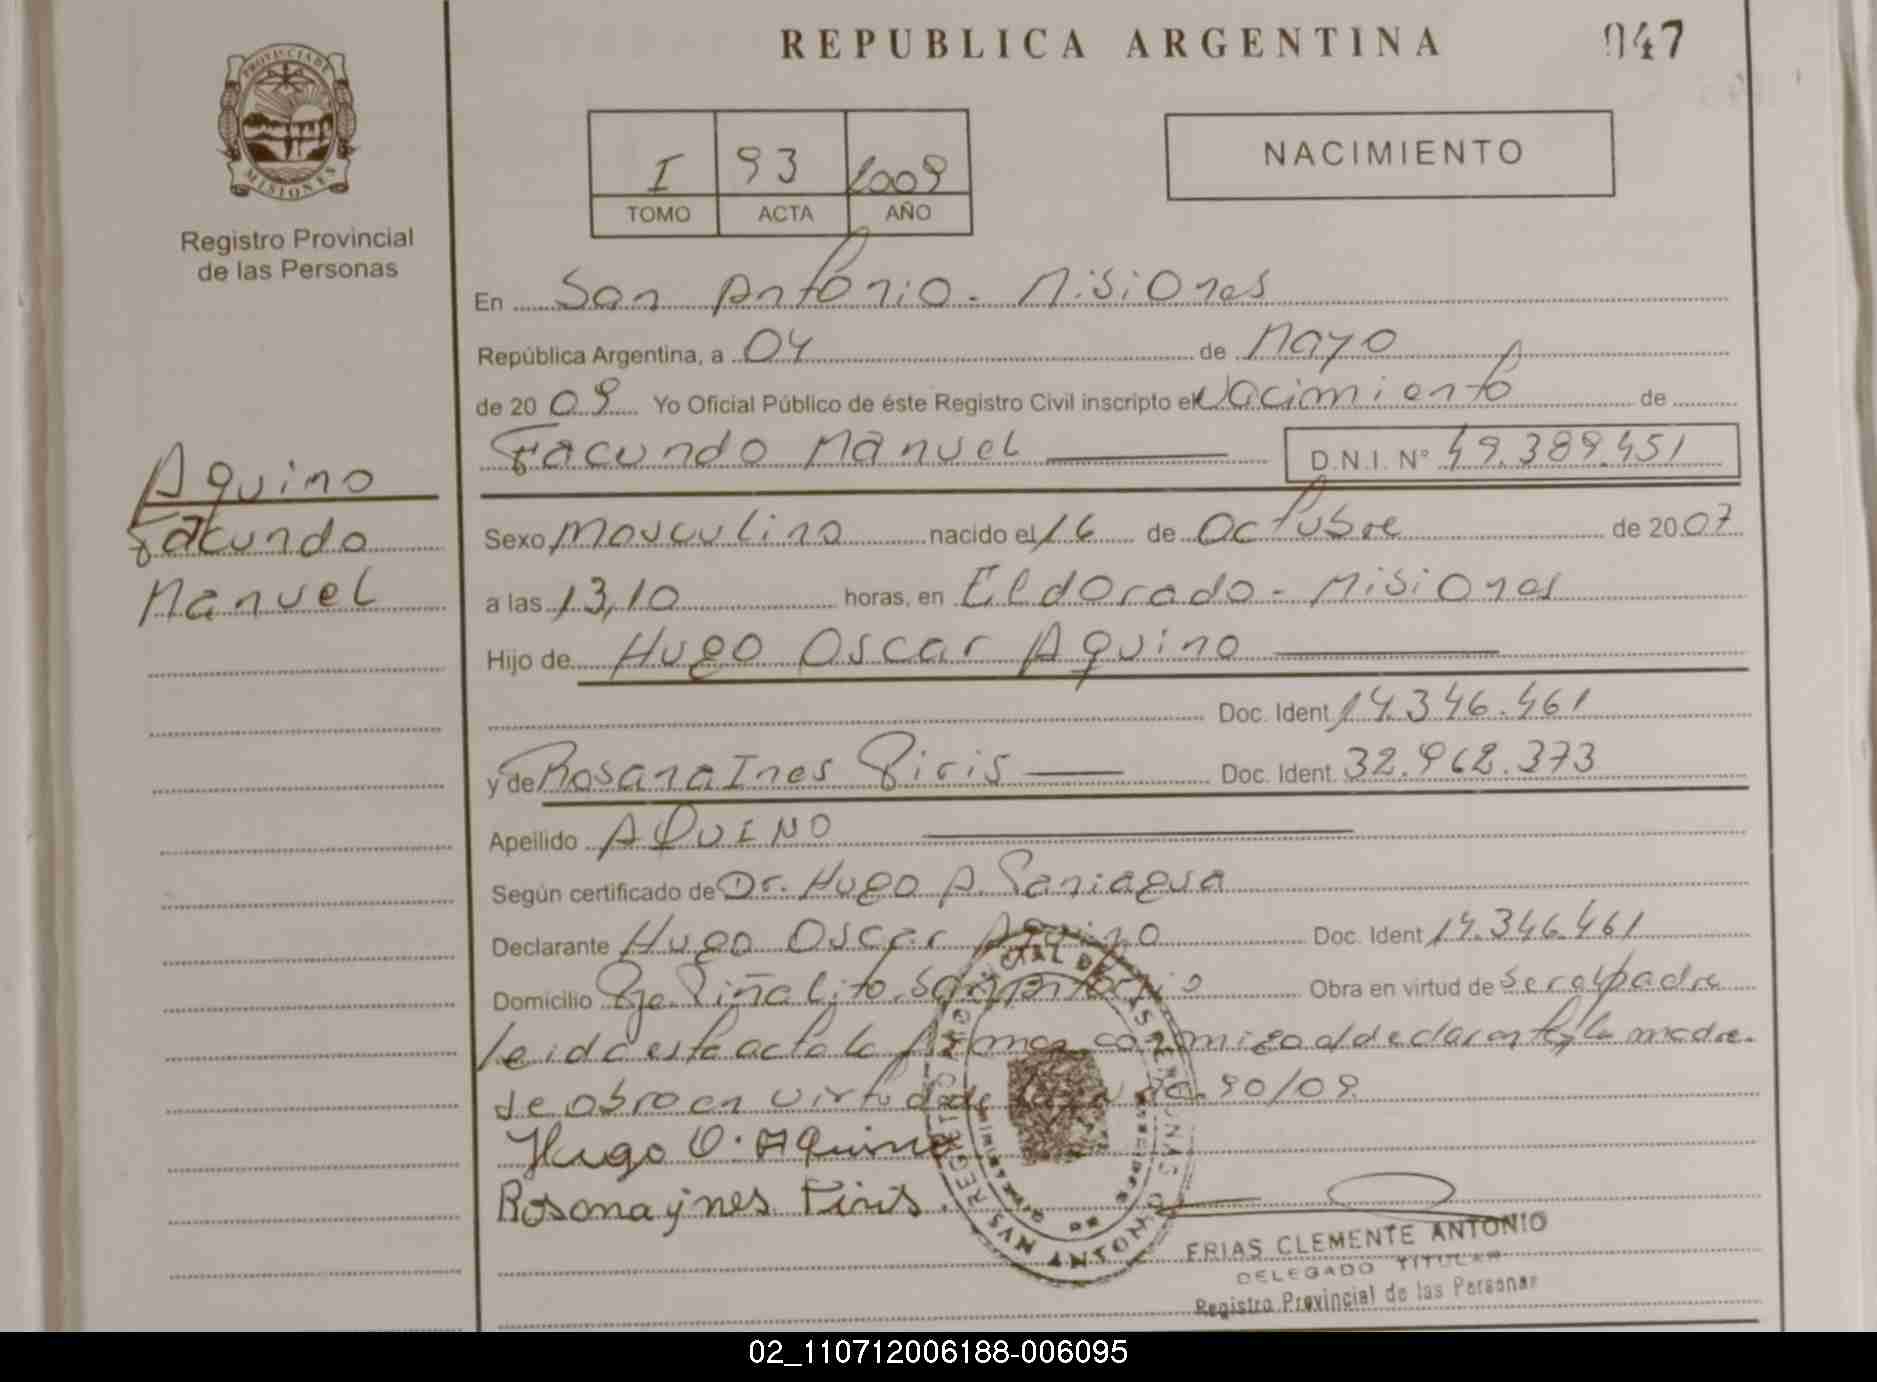 REPUBLICA ARGENTINA
047
PROVINCIA DE
MISIONES
Registro Provincial
de las Personas
I 93 2009
TOMO ACTA AÑO
NACIMIENTO
En San Antonio - Misiones
República Argentina, a 04 de Mayo
de 2009 Yo Oficial Público de éste Registro Civil inscripto el Nacimiento de
Facundo Manuel D.N.I. Nº 49.389.451
Aquino
Facundo
Manuel
Sexo Masculino nacido el 16 de Octubre de 2007
a las 13,10 horas, en Eldorado - Misiones
Hijo de Hugo Oscar Aquino
Doc. Ident. 14.346.461
y de Rosana Ines Piris Doc. Ident. 32.962.373
Apellido AQUINO
Según certificado de Dr. Hugo A. Paniagua
Declarante Hugo Oscar Aquino Doc. Ident. 14.346.461
Domicilio Pje Piñalito San Antonio Obra en virtud de ser el padre
leida esta acta la firman conmigo el declarante y la madre.
se obro en virtud de 90/09
Hugo O. Aquino
Rosana ynes Piris.
FRIAS CLEMENTE ANTONIO
DELEGADO TITULAR
Registro Provincial de las Personas
REGISTRO PROVINCIAL DE LAS PERSONAS
SAN ANTONIO
02_110712006188-006095